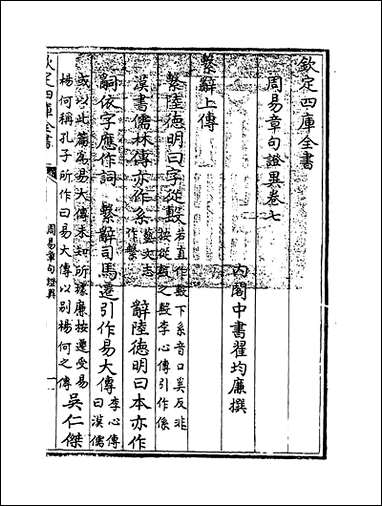 欽定四庫全書
周易章句證異卷七
內閣中書翟均廉撰
繫辭上傳
繫陸德明曰字從毄若直作毄下系音口奚反非
按從毄之毄李心傳引作係
漢書儒林傳亦作系藝文志
作繫
辭陸德明曰本亦作
嗣依字應作詞
繫辭司馬遷引作易大傳李心傳
曰漢儒
或以此篇為易大傳未知所據廉按遷受易
楊何稱孔子所作曰易大傳以別楊何之傳
吳仁傑
欽定四庫全書
周易章句證異
一